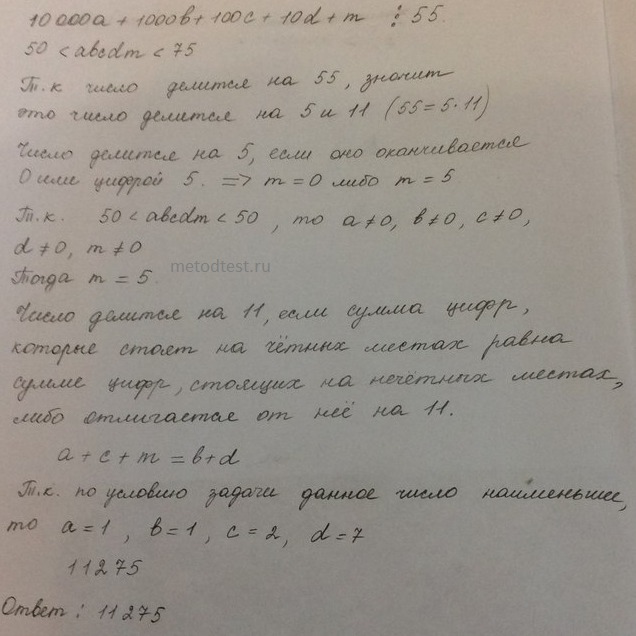 10 000a + 1000b + 100c + 10d + m ⋮ 55.
50 < abcdm < 75
Т.к число делится на 55, значит
это число делится на 5 и 11 (55 = 5·11)
Число делится на 5, если оно оканчивается
0 или цифрой 5. => m = 0 либо m = 5
Т.к. 50 < abcdm < 50, то a ≠ 0, b ≠ 0, c ≠ 0,
d ≠ 0, m ≠ 0
metodtest.ru
Тогда m = 5.
Число делится на 11, если сумма цифр,
которые стоят на чётных местах равна
сумме цифр, стоящих на нечётных местах,
либо отличается от неё на 11.
a + c + m = b + d
Т.к. по условию задачи данное число наименьшее,
то a = 1, b = 1, c = 2, d = 7
11275
Ответ: 11275